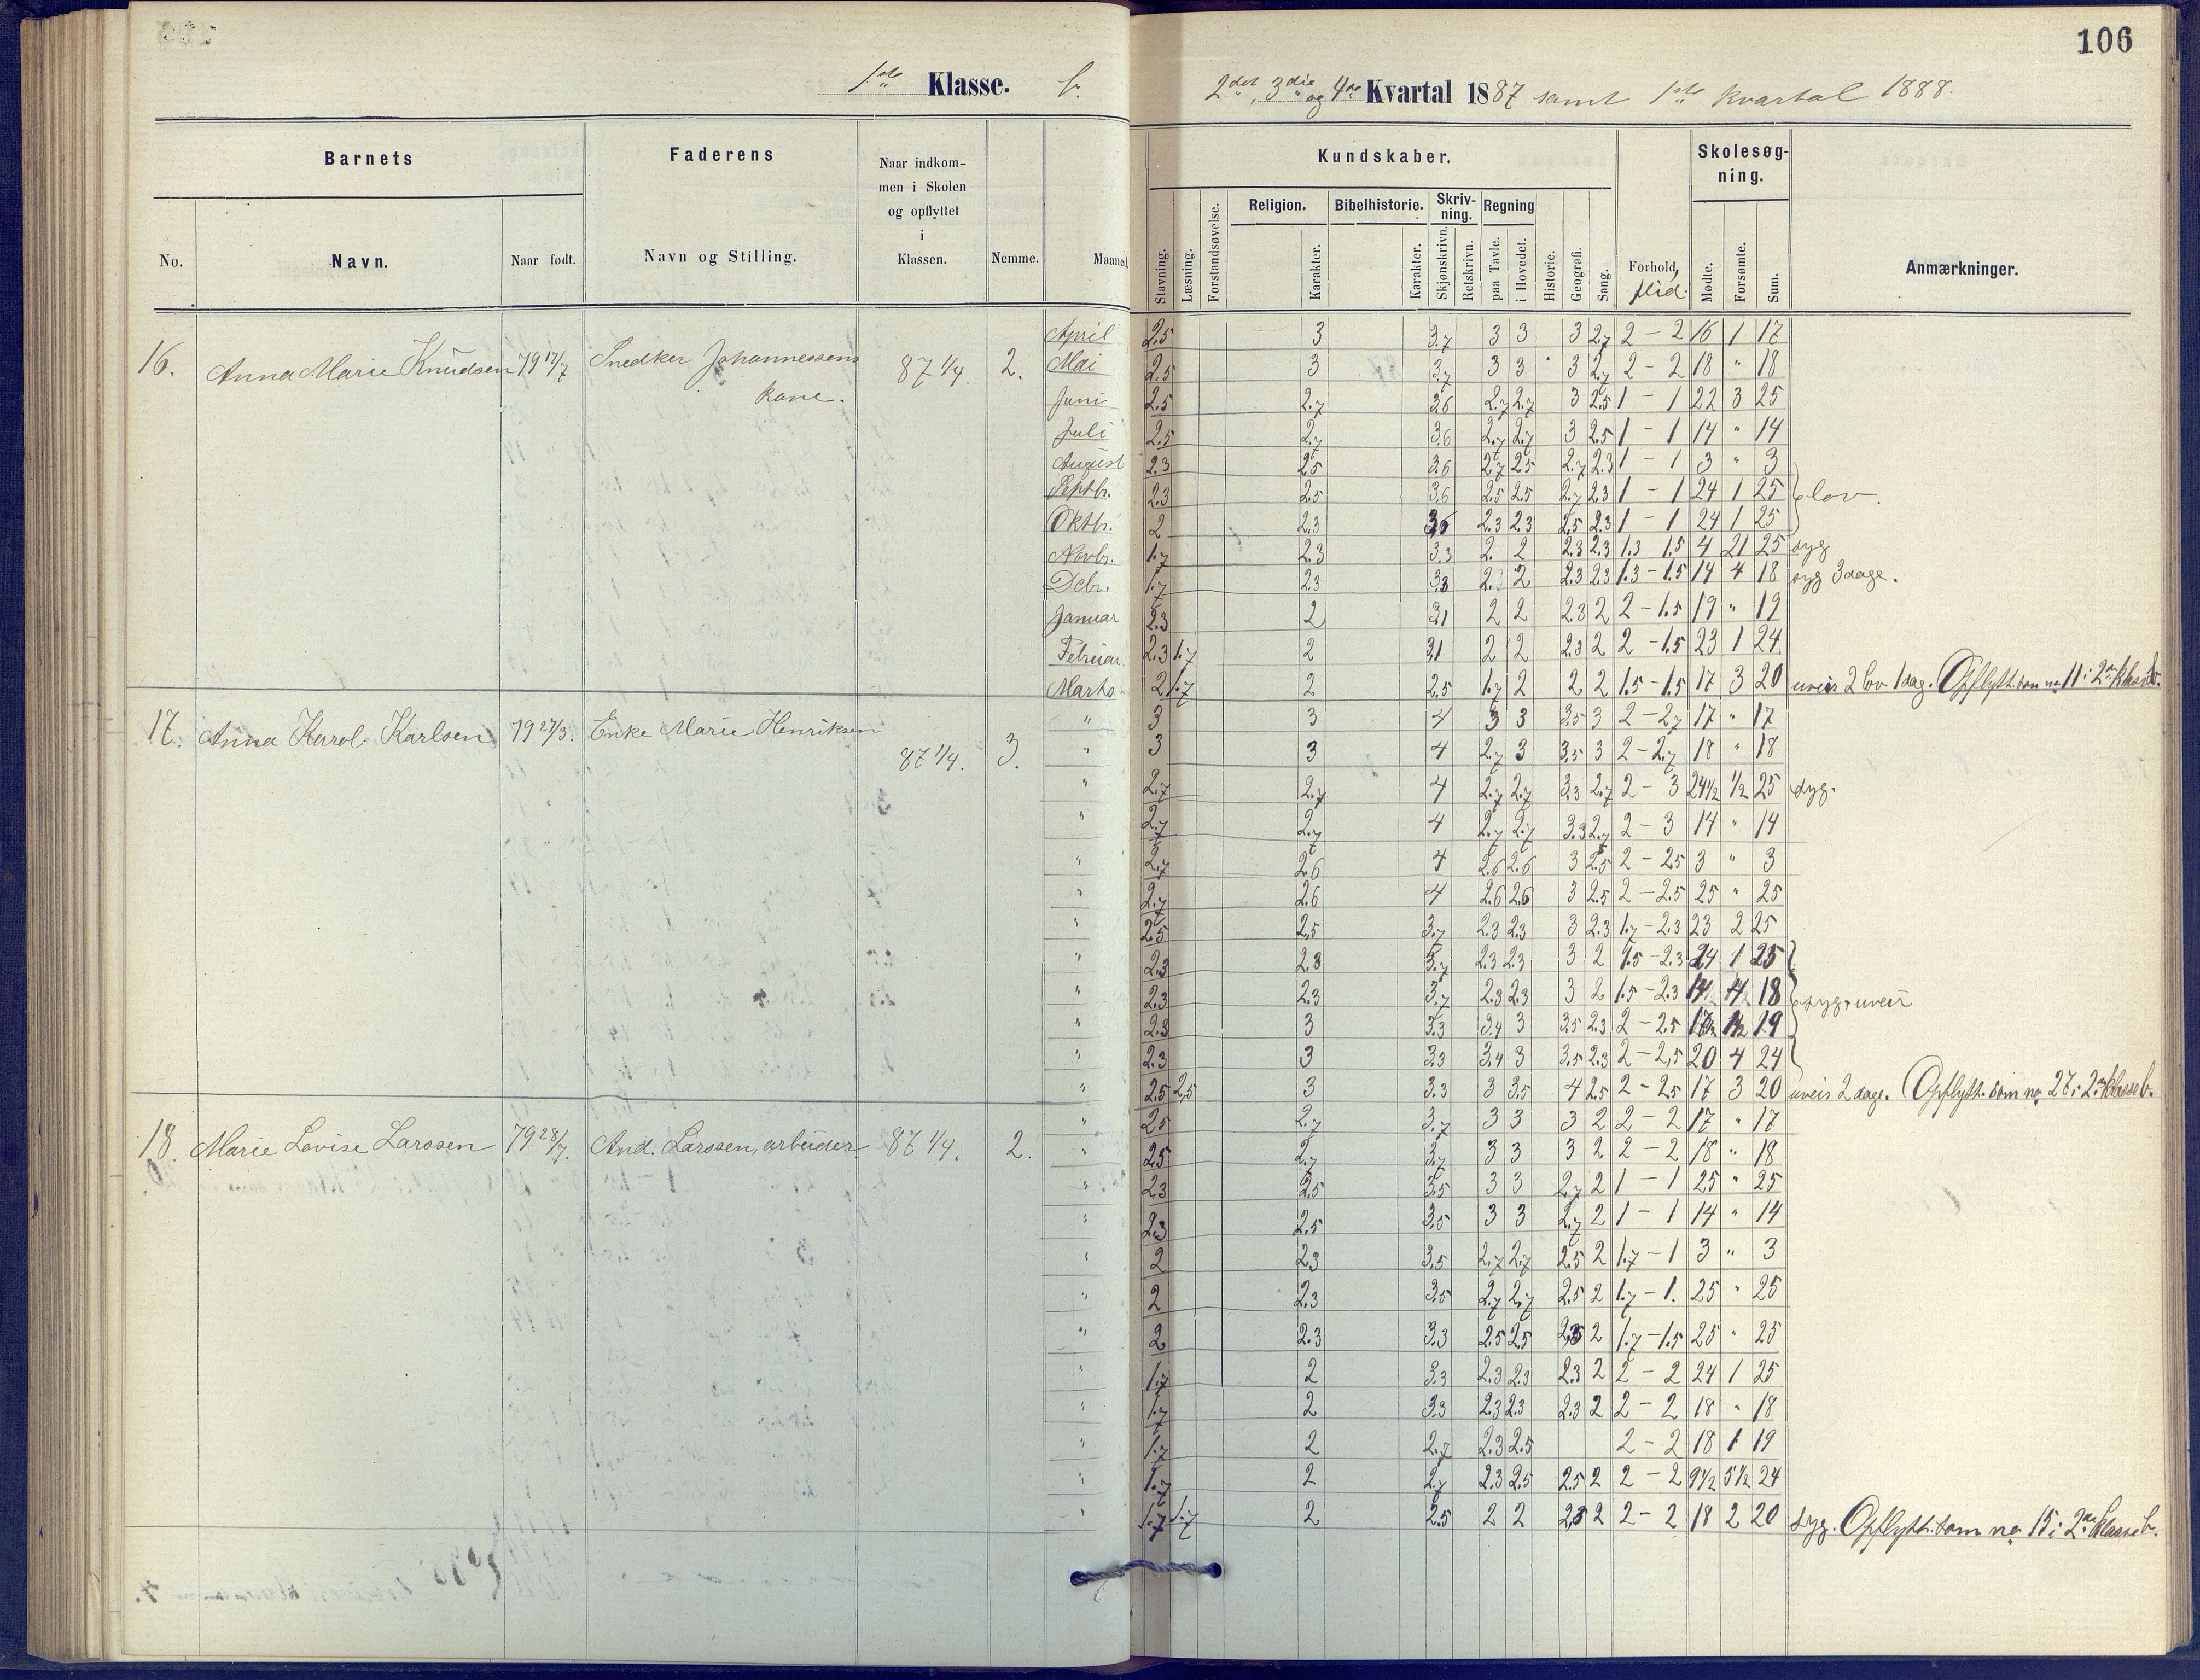 106
1ste Klasse. b.
2det, 3die og 4de Kvartal 1887 samt 1ste kvartal 1888.
Barnets
Faderens
Naar indkom-
men i Skolen
og opflyttet
i
Klassen.
Nemme.
Maaned.
No.
Navn.
Naar født.
Navn og Stilling.
Kundskaber.
Skolesøg-
ning.
Stavning.
Læsning.
Forstandsøvelse.
Religion.
Karakter.
Bibelhistorie.
Karakter.
Skriv-
ning.
Skjønskrivn.
Retskrivn.
Regning
paa Tavle.
i Hovedet.
Historie.
Geografi.
Sang.
Forhold,
flid.
Mødte.
Forsømte.
Sum.
Anmærkninger.
16. Anna Marie Knudsen 79 17/7 Snedker Johannessens
kone. 87 1/4. 2.
April 2.5 3 3.7 3 3 3 2.7 2 - 2 16 1 17
Mai 2.5 3 3.7 3 3 3 2.7 2 - 2 18 " 18
Juni 2.5 2.7 3.6 2.7 2.7 3 2.5 1 - 1 22 3 25
Juli 2.5 2.7 3.6 2.7 2.7 3 2.5 1 - 1 14 " 14
August 2.3 2.5 3.6 2.7 2.5 2.7 2.3 1 - 1 3 " 3
Septbr. 2.3 2.5 3.6 2.5 2.5 2.7 2.3 1 - 1 24 1 25 lov.
Oktbr. 2 2.3 3.5 2.3 2.3 2.5 2.3 1 - 1 24 1 25
Novbr. 1.7 2.3 3.3 2. 2 2.3 2.3 1.3 1.5 4 21 25 syg
Debr. 1.7 2.3 3.3 2.3 2 2.3 2.3 1.3 - 1.5 14 4 18 syg 3 dage.
Januar 2.3 2 3.1 2 2 2.3 2 2 - 1.5 19 " 19
Februar 2.3 1.7 2 3.1 2 2 2.3 2 2 - 1.5 23 1 24
Marts 2 1.7 2 2.5 1.7 2 2 2 1.5 - 1.5 17 3 20 uveir 2 lov 1 dag. Opflytt. som no 11 i 2den klasse b.
17. Anna Karol. Karlsen 79 27/3. Enke Marie Henriksen 87 1/4. 3.
" 3 3 4 3 3 3.5 3 2 - 2.7 17 " 17
" 3 3 4 2.7 3 3.5 3 2 - 2.7 18 " 18
" 2.7 2.7 4 2.7 2.7 3.3 2.7 2 - 3 24 1/2 1/2 25 syg.
" 2.7 2.7 4 2.7 2.7 3.3 2.7 2 - 3 14 " 14
" 2.7 2.6 4 2.6 2.6 3 2.5 2 - 2.5 3 " 3
" 2.7 2.6 4 2.6 2.6 3 2.5 2 - 2.5 25 " 25
" 2.5 2.5 3.7 2.3 2.3 3 2.3 1.7 - 2.3 23 2 25
" 2.3 2.3 3.7 2.3 2.3 3 2 1.5 - 2.3 24 1 25
" 2.3 2.3 3.7 2.3 2.3 3 2 1.5 - 2.3 14 4 18 syg + uveir
" 2.3 3 3.3 3.4 3 3.5 2.3 2 - 2.5 17 1/2 1 1/2 19
" 2.3 3 3.3 3.4 3 3.5 2.3 2 - 2.5 20 4 24
" 2.5 2.5 3 3.3 3 3.5 4 2.5 2 - 2.5 17 3 20 uveir 2 dage. Opflytt. som no 27 i 2den klasse b.
18. Marie Lovise Larssen 79 28/7. And. Larssen, arbeider 87 1/4. 2.
" 2.5 2.7 3.7 3 3 3 2 2 - 2 17 " 17
" 2.5 2.7 3.7 3 3 3 2 2 - 2 18 " 18
" 2.3 2.5 3.5 3 3 2.7 2 1 - 1 25 " 25
" 2.3 2.5 3.5 3 3 2.7 2 1 - 1 14 " 14
" 2 2.3 3.5 2.7 2.7 2.5 2 1.7 - 1 3 " 3
" 2 2.3 3.5 2.7 2.7 2.5 2 1.7 - 1. 25 " 25
" 2 2.3 3.3 2.5 2.5 2.3 2 1.7 - 1.5 25 " 25
" 1.7 2 3.3 2.3 2.3 2.3 2 2 - 2 24 1 25
" 1.7 2 3.3 2.3 2.3 2.3 2 2 - 2 18 " 18
" 1.7 2 2.7 2.3 2.5 2 - 2 18 1 19
" 1.7 2 2.7 2.3 2.5 2.5 2 2 - 2 9 1/2 5 1/2 24
" 1.7 1.7 2 2.5 2 2 2.3 2 2 - 2 18 2 20 syg. Opflytt. som no 15 i 2den klasse b.